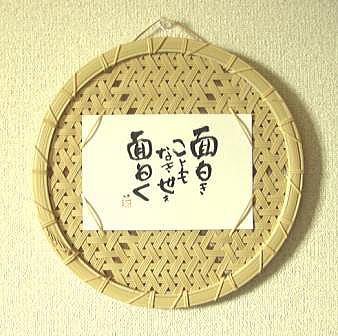 面白き
こともなき世を
面白く